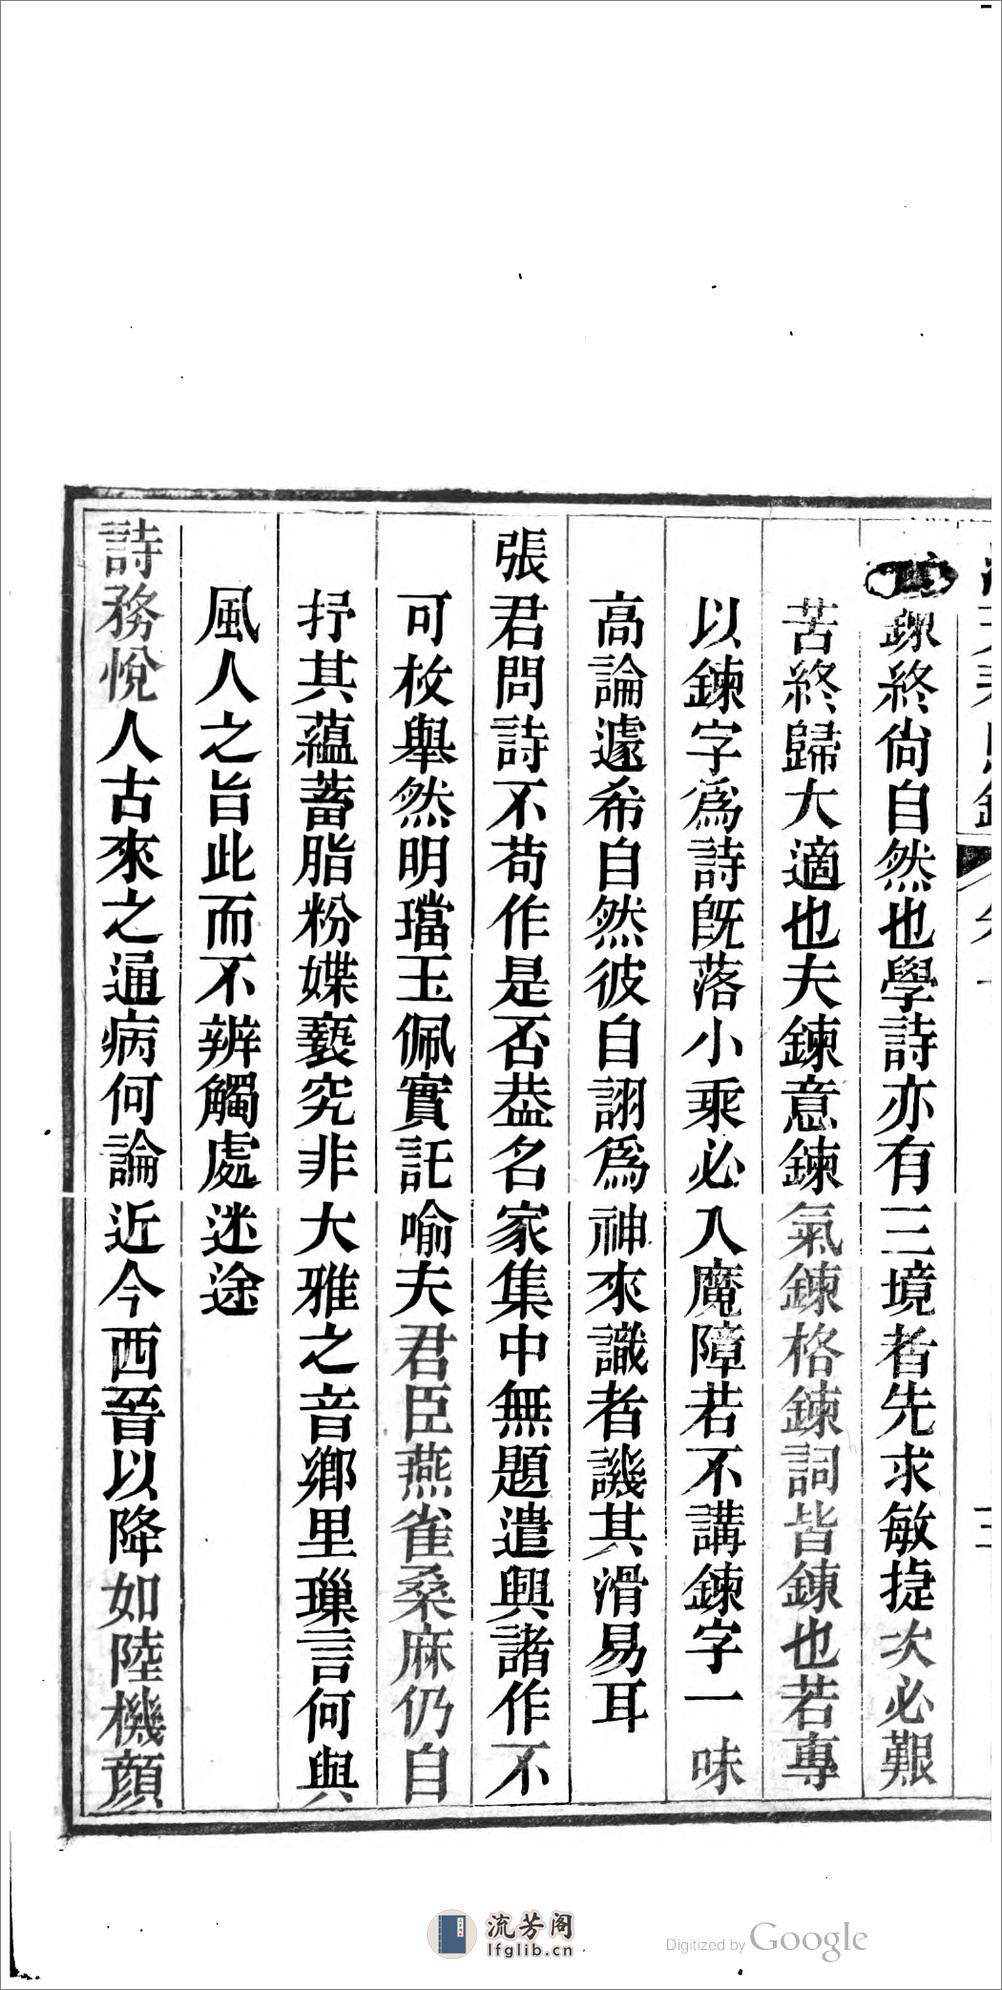 鍊終尙自然也學詩亦有三境者先求敏捷次必艱
苦終歸大適也夫鍊意鍊氣鍊格鍊詞皆鍊也若專
以鍊字爲詩旣落小乘必入魔障若不講鍊字一味
高論遽希自然彼自詡爲神來識者譏其滑易耳
張君問詩不苟作是否葢名家集中無題遣興諸作不
可枚舉然明璫玉佩實託喻夫君臣燕雀桑麻仍自
抒其蘊蓄脂粉媟褻究非大雅之音鄉里璅言何與
風人之旨此而不辨觸處迷途
詩務悅人古來之通病何論近今西晉以降如陸機顏
流芳阁
lfglib.cn
Digitized by Google